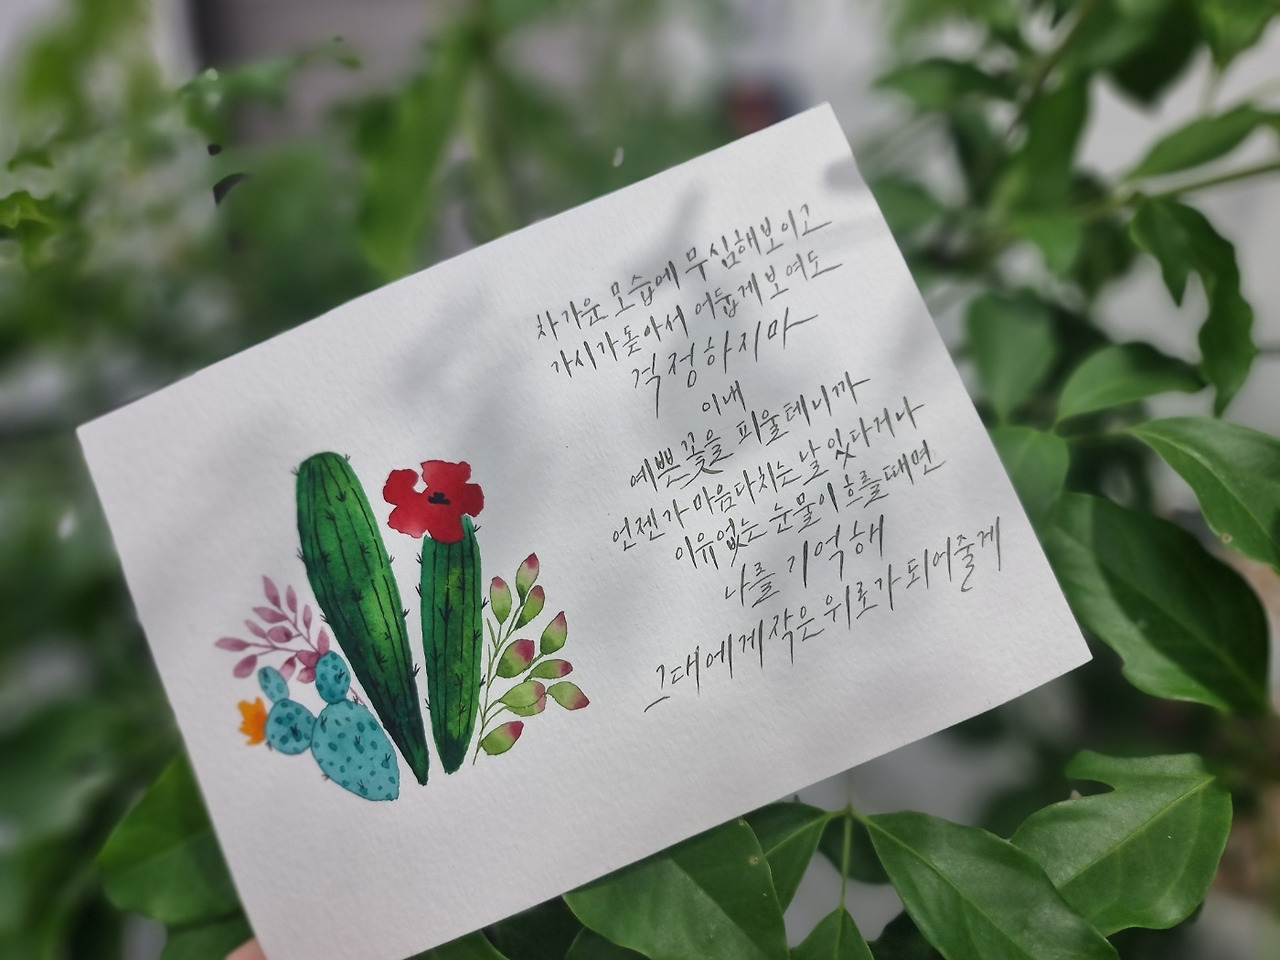 차가운 모습에 무심해보이고
가시가 돋아서 어둡게 보여도
걱정하지마
이내
예쁜 꽃을 피울테니까
언젠가 마음 다치는 날 있다거나
이유없는 눈물이 흐를때면
나를 기억해
그대에게 작은 위로가 되어줄게